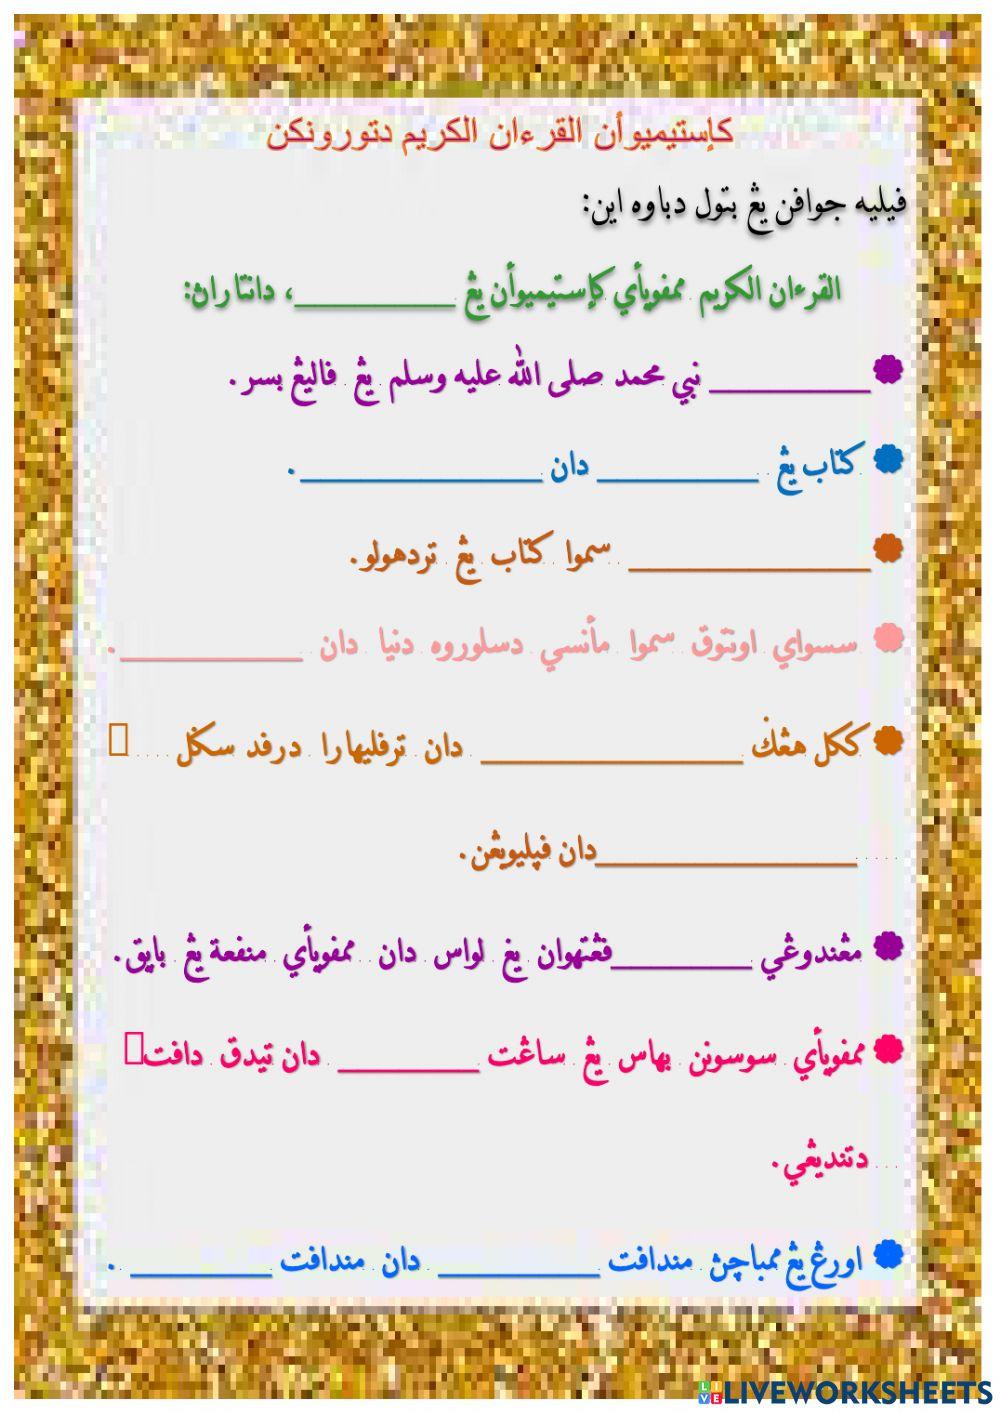 كإستيميوأن القرءان الكريم دتورونكن
فيليه جوافن يڠ بتول دباوه اين:
القرءان الكريم ممفوياأي كإستيميوأن يڠ __________، دانتاراڽ:
__________ نبي محمد صلى الله عليه وسلم يڠ فاليڠ بسر.
كتاب يڠ __________ دان _______________.
_______________ سموا كتاب يڠ تردهولو.
سسواي اونتوق سموا مأنسي دسلوروه دنيا دان ___________.
ككل هڠݢ ________________ دان ترفليهارا درفد سݢل
______________دان فڽليويڠن.
مڠندوڠي _________ڤڠتهوان يڠ لواس دان ممفوياأي منفعة يڠ بايق.
ممفوياأي سوسونن بهاس يڠ ساڠت _________ دان تيدق دافت
دتنديڠي.
اورڠ يڠ ممباچڽ مندافت __________ دان مندافت _________ .
LIVEWORKSHEETS